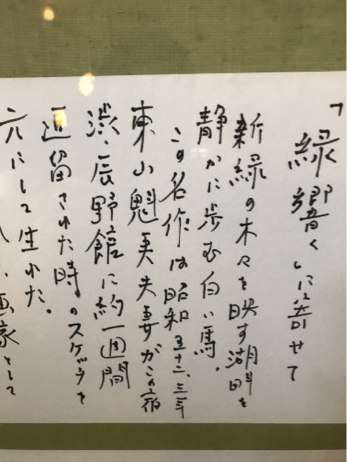 「緑響く」に寄せて
新緑の木々を映す湖畔を
静かに歩む白い馬。
この名作は昭和五十二、三年
東山魁夷夫妻がこの宿
渋・辰野館に約一週間
逗留された時のスケッチを
元にして生れた。
画家として